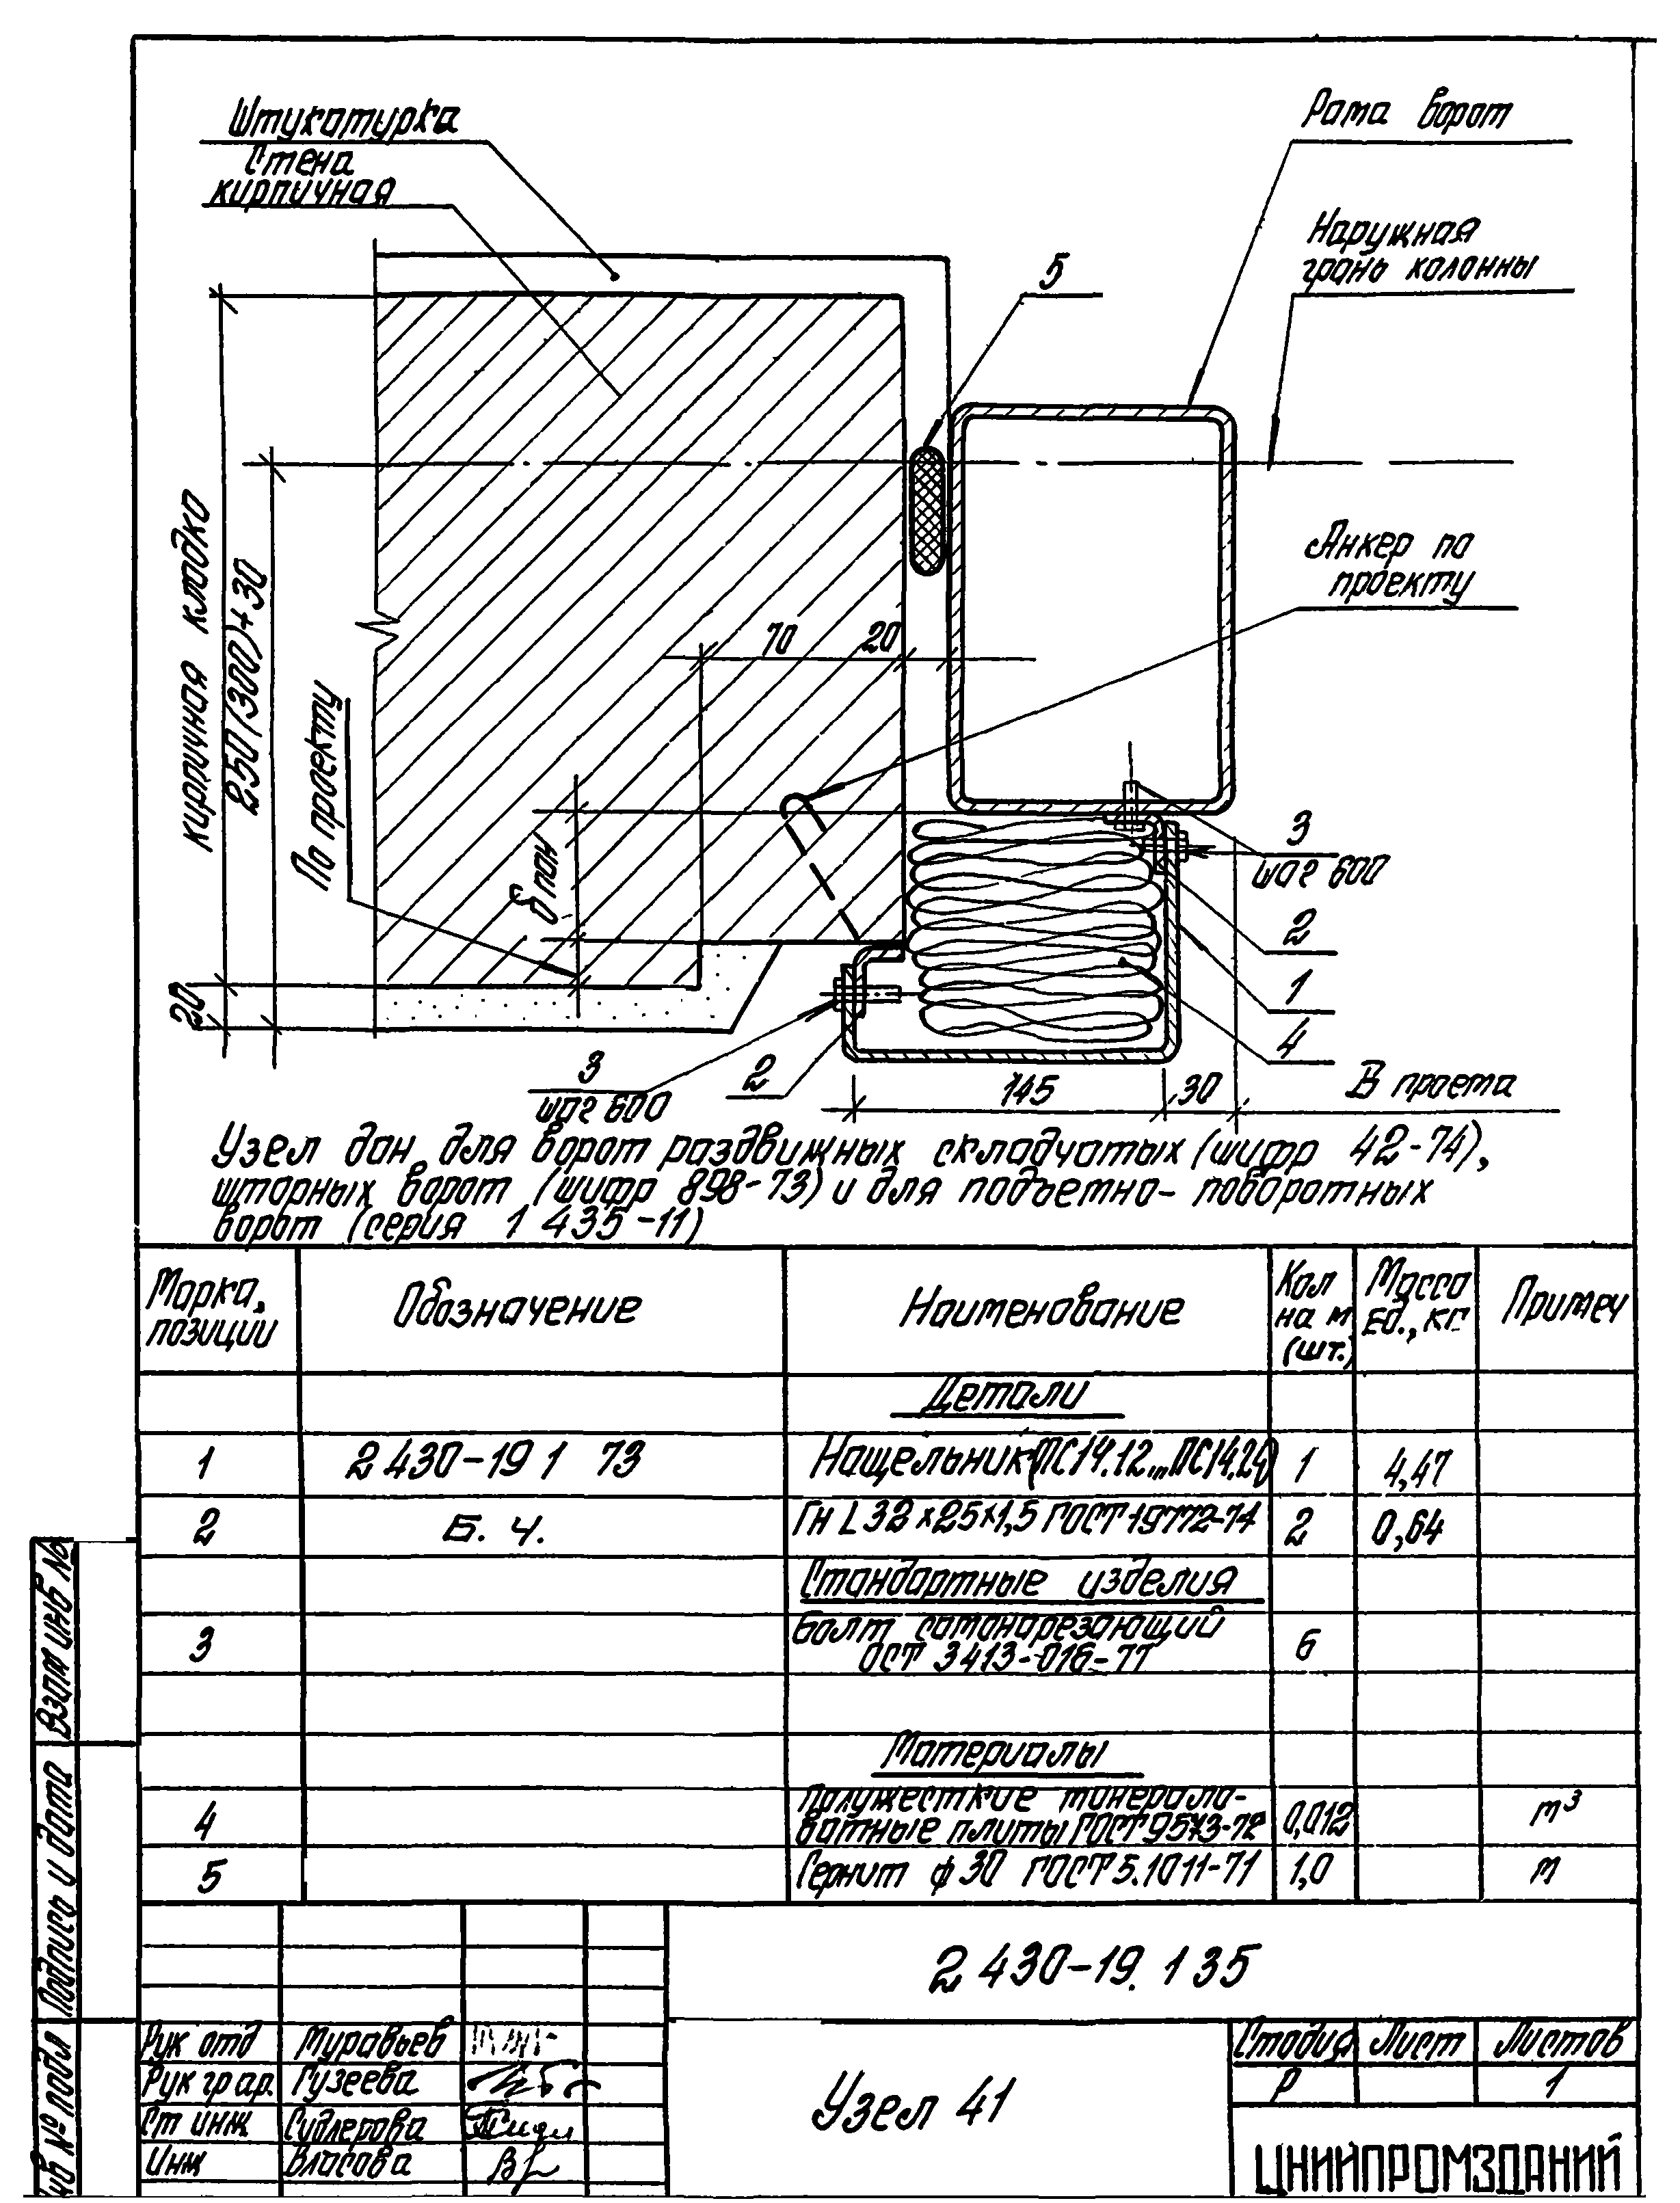 Штукатурка
Стена
кирпичная
Рама ворот
Наружная
грань колонны
5
Анкер по
проекту
кирпичная кладка
250(300)+30
По проекту
δ пан
70
20
20
3
шаг 600
2
1
4
3
шаг 600
2
145
30
В проета
Узел дан для ворот раздвижных складчатых (шифр 42-74),
шторных ворот (шифр 898-73) и для подъемно-поворотных
ворот (серия 1 435-11)
Марка, позиции
Обозначение
Наименование
Кол на м (шт.)
Масса ед., кг
Примеч
Детали
1 2 430-19 1 73 Нащельник (ПС14.12...ПС14.24) 1 4,47
2 Б. Ч. Гн L 32×25×1,5 ГОСТ 19772-74 2 0,64
Стандартные изделия
3 Болт самонарезающий 6
ОСТ 3413-016-77
Материалы
Полужесткие минерало-
4 ватные плиты ГОСТ 9573-72 0,012 м³
5 Гернит ф 30 ГОСТ 5.1011-71 1,0 м
2 430-19. 1 35
Рук отд Муравьев
Рук гр ар. Гузеева
Ст инж Сидлерова
Инж Власова
Узел 41
Стадия Лист Листов
Р 1
ЦНИИПРОМЗДАНИЙ
Взам инв №
Подпись и дата
Инв № подл